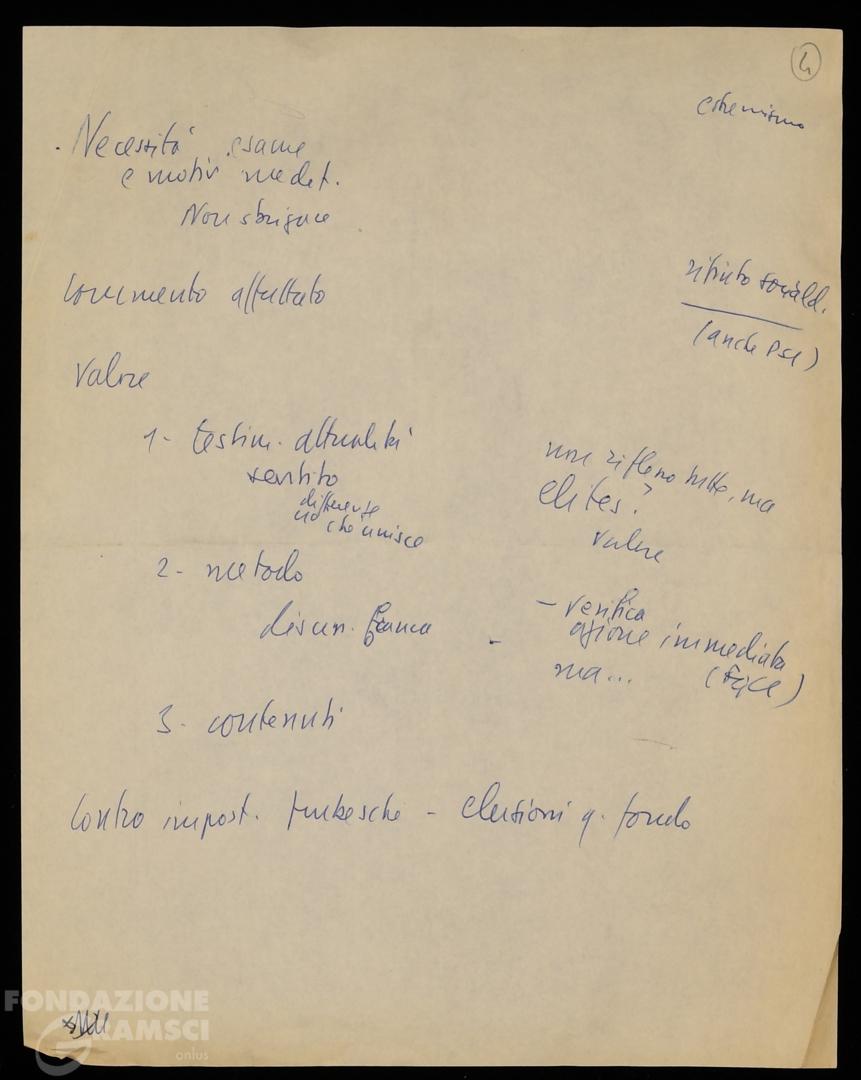 4
estremismo
Necessità esame
e motivi medet.
Non sbrigare
rifiuto sociald.
(anche PSI)
Valore
1- testim. attualità
sentito
differenze
che unisce
non riflette tutte, ma
elites?
valore
2- metodo
discus. franca
- verifica
azione immediata
ma... (FGCI)
3- contenuti
Contro impost. furbesche - elusioni q. fondo
FONDAZIONE
GRAMSCI
onlus